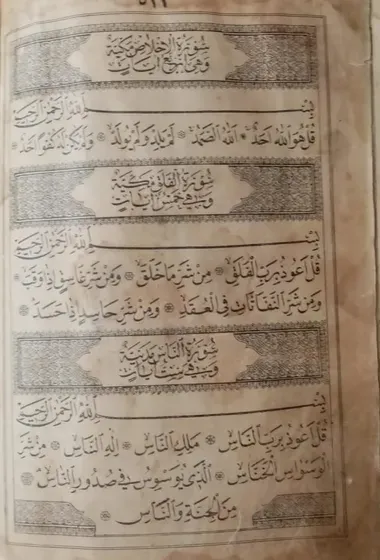 سورة الاخلاص مكية
وهى اربع ايات
بِسْمِ اللهِ الرَّحْمٰنِ الرَّحِيمِ
قُلْ هُوَ اللهُ اَحَدٌ ۞ اَللهُ الصَّمَدُ ۞ لَمْ يَلِدْ وَلَمْ يُولَدْ ۞ وَلَمْ يَكُنْ لَهُ كُفُوًا اَحَدٌ ۞
سورة الفلق مكية
وهى خمس ايات
بِسْمِ اللهِ الرَّحْمٰنِ الرَّحِيمِ
قُلْ اَعُوذُ بِرَبِّ الْفَلَقِ ۞ مِنْ شَرِّ مَا خَلَقَ ۞ وَمِنْ شَرِّ غَاسِقٍ اِذَا وَقَبَ ۞
وَمِنْ شَرِّ النَّفَّاثَاتِ فِى الْعُقَدِ ۞ وَمِنْ شَرِّ حَاسِدٍ اِذَا حَسَدَ ۞
سورة الناس مدنية
وهى ست ايات
بِسْمِ اللهِ الرَّحْمٰنِ الرَّحِيمِ
قُلْ اَعُوذُ بِرَبِّ النَّاسِ ۞ مَلِكِ النَّاسِ ۞ اِلٰهِ النَّاسِ ۞ مِنْ شَرِّ
الْوَسْوَاسِ الْخَنَّاسِ ۞ اَلَّذِى يُوَسْوِسُ فِى صُدُورِ النَّاسِ ۞
مِنَ الْجِنَّةِ وَالنَّاسِ ۞